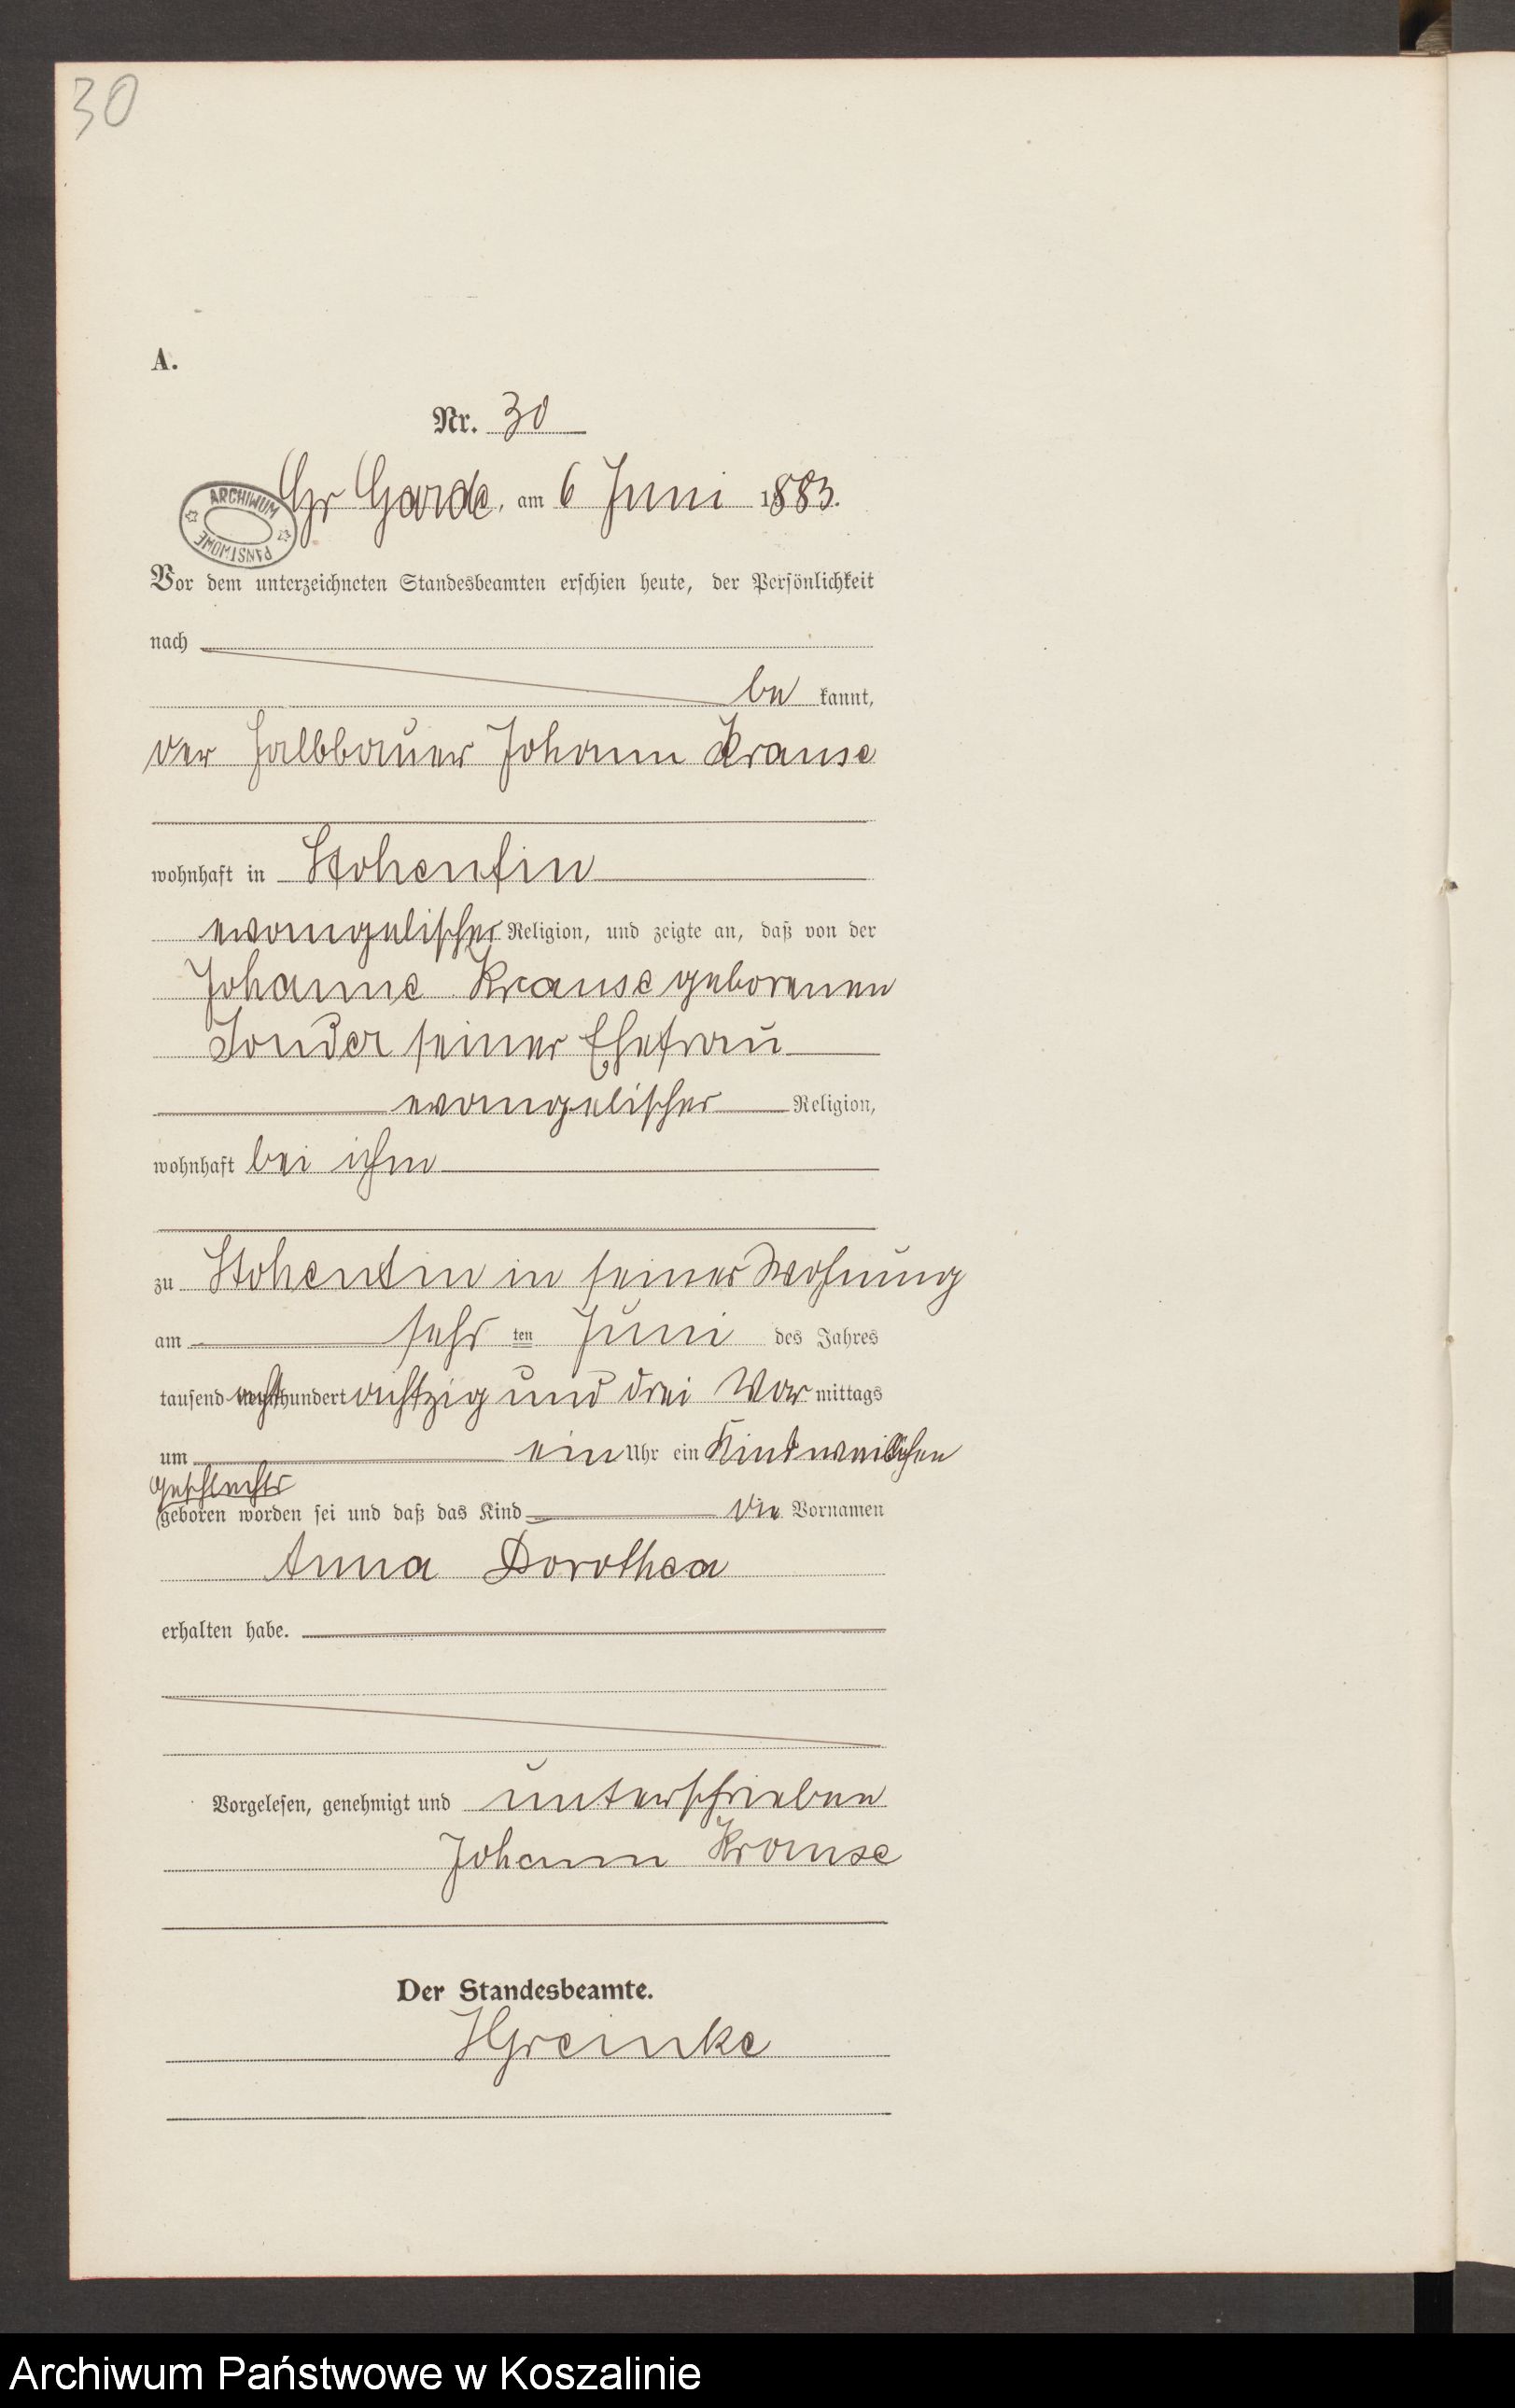 30
A.
Nr. 30
ARCHIWUM PAŃSTWOWE
Gr Garde, am 6 Juni 1883.
Vor dem unterzeichneten Standesbeamten erschien heute, der Persönlichkeit
nach
be kannt,
der Halbbauer Johann Krause
wohnhaft in Stohentin
evangelischer Religion, und zeigte an, daß von der
Johanne Krause geborenen
seiner Ehefrau
evangelischer Religion,
wohnhaft bei ihm
zu Stohentin in seiner Wohnung
am ten Juni des Jahres
tausend acht hundert achtzig und drei Vor mittags
um ein Uhr ein Kind weiblichen
Geschlechts
geboren worden sei und daß das Kind die Vornamen
Anna Dorothea
erhalten habe.
Vorgelesen, genehmigt und unterschrieben
Johann Krause
Der Standesbeamte.
HGreinke
Archiwum Państwowe w Koszalinie